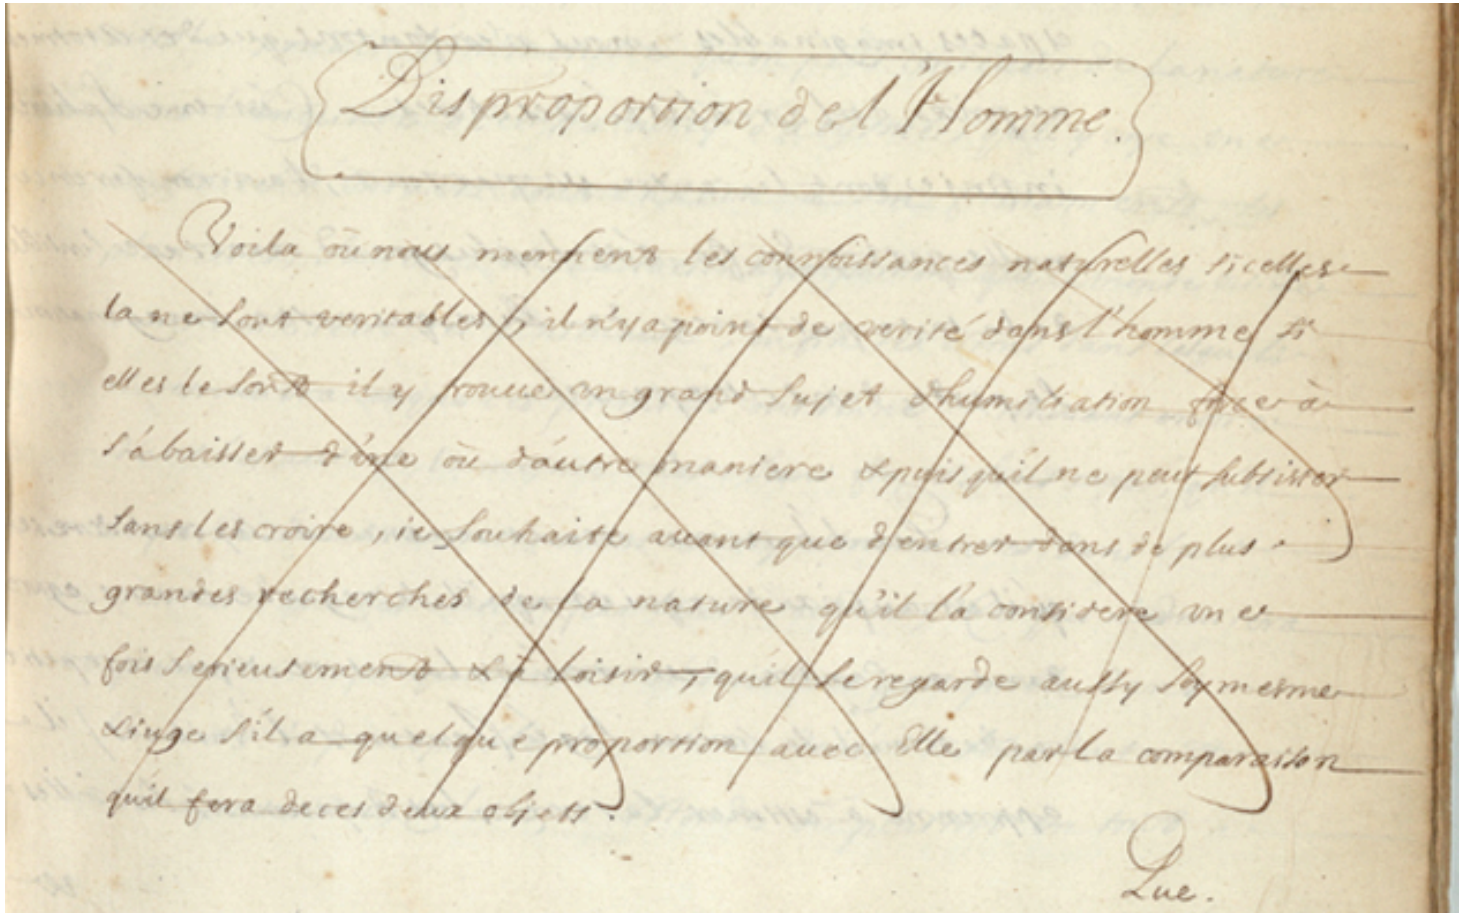 Disproportion de l'Homme.
Voila où nous menent les connoissances naturelles si celles
la ne sont veritables, il n'y a point de verité dans l'homme, si
elles le sont il y trouue vn grand sujet d'humiliation forcé à
s'abaisser d'vne où d'autre maniere & puis qu'il ne peut subsister
sans les croire, ie souhaite auant que d'entrer dans de plus
grandes recherches de la nature qu'il la considere vne
fois serieusement & à loisir, qu'il se regarde aussy soy mesme
& iuge s'il a quelque proportion auec Elle par la comparaison
qu'il fera de ces deux objets.
Que.